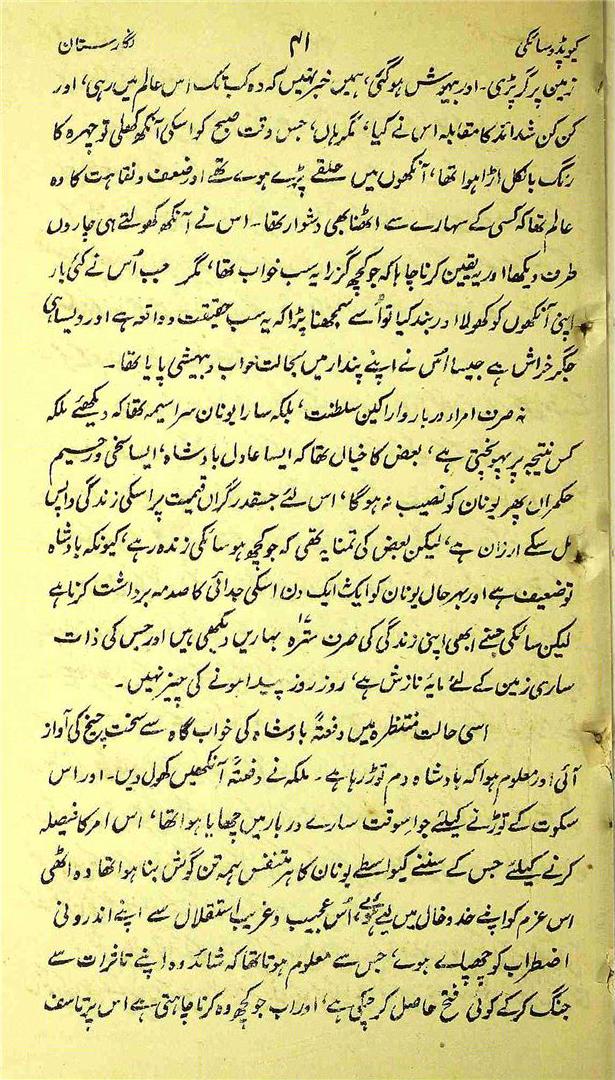 کیوپڈوسائکی ۴۱ نگارستان
زمین پر گر پڑی۔ اور بیہوش ہو گئی، ہمیں خبر نہیں کہ وہ کب تک اس عالم میں رہی، اور
کن کن شدائد کا مقابلہ اس نے کیا، مگر ہاں، جس وقت صبح کو اسکی آنکھ کھلی تو چہرہ کا
رنگ بالکل اڑا ہوا تھا، آنکھوں میں حلقے پڑے ہوے تھے اور ضعف و نقاہت کا وہ
عالم تھا کہ کسی کے سہارے سے اٹھنا بھی دشوار تھا۔ اس نے آنکھ کھولتے ہی چاروں
طرف دیکھا اور یہ یقین کرنا چاہا کہ جو کچھ گزرا یہ سب خواب تھا، مگر جب اُس نے کئی بار
اپنی آنکھوں کو کھولا اور بند کیا تو اُسے سمجھنا پڑا کہ یہ سب حقیقت و واقعہ ہے اور ویسا ہی
جگر خراش ہے جیسا اُس نے اپنے پندار میں بحالت خواب و بیہشی پایا تھا۔
نہ صرف امراء دربار و اراکین سلطنت، بلکہ سارا یونان سراسیمہ تھا کہ دیکھئے ملکہ
کس نتیجہ پر پہونچتی ہے، بعض کا خیال تھا کہ ایسا عادل بادشاہ، ایسا سخی و رحیم
حکمراں پھر یونان کو نصیب نہ ہوگا، اس لئے جسقدر گراں قیمت پر اسکی زندگی واپس
مل سکے ارزان ہے، لیکن بعض کی تمنا یہ تھی کہ جو کچھ ہو سائکی زندہ رہے، کیونکہ بادشاہ
تو ضعیف ہے اور بہر حال یونان کو ایک نہ ایک دن اسکی جدائی کا صدمہ برداشت کرنا ہے
لیکن سائکی جسنے ابھی اپنی زندگی کی صرف سترہ ۱۷ بہاریں دیکھی ہیں اور جس کی ذات
ساری زمین کے لئے مایۂ نازش ہے، روز روز پیدا ہونے کی چیز نہیں۔
اسی حالت منتظرہ میں دفعتہً بادشاہ کی خواب گاہ سے سخت چیخ کی آواز
آئی اور معلوم ہوا کہ بادشاہ دم توڑ رہا ہے۔ ملکہ نے دفعتہً آنکھیں کھول دیں۔ اور اس
سکوت کے توڑنے کیلئے جو اسوقت سارے دربار میں چھایا ہوا تھا، اس امر کا فیصلہ
کرنے کیلئے جس کے سننے کیواسطے یونان کا ہر متنفس ہمہ تن گوش بنا ہوا تھا وہ اٹھی
اس عزم کو اپنے خدوخال میں لیے ہوئے، اُس عجیب و غریب استقلال سے اپنے اندرونی
اضطراب کو چھپائے ہوے، جس سے معلوم ہوتا تھا کہ شائد وہ اپنے تاثرات سے
جنگ کر کے کوئی فتح حاصل کر چکی ہے، اور اب جو کچھ وہ کرنا چاہتی ہے اس پر تاسف